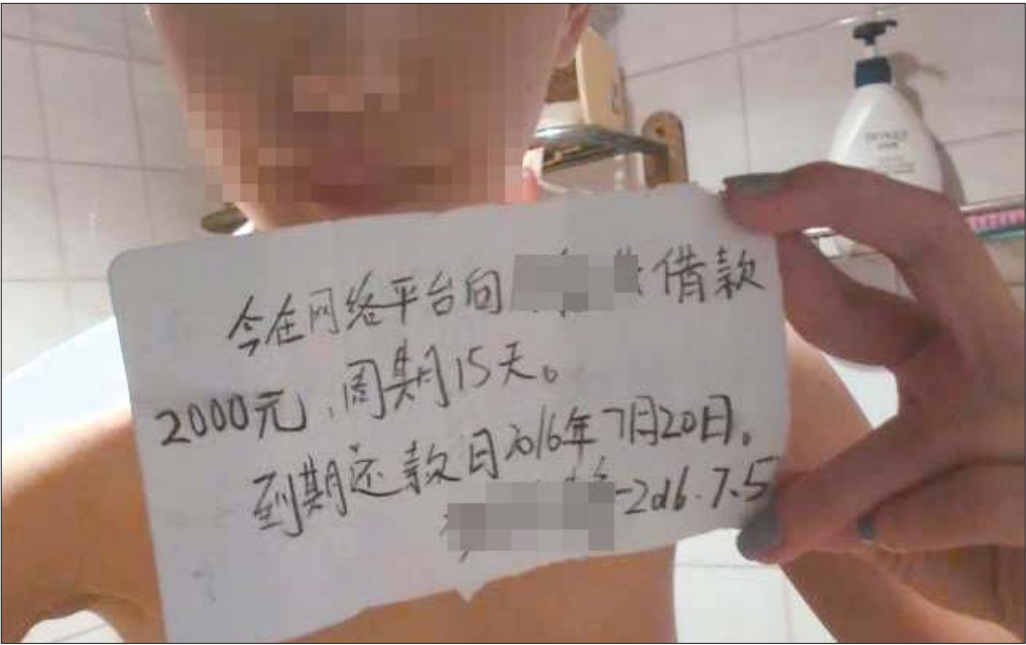 今在网络平台向 借款
2000元，周期15天。
到期还款日2016年7月20日。
-2016.7.5